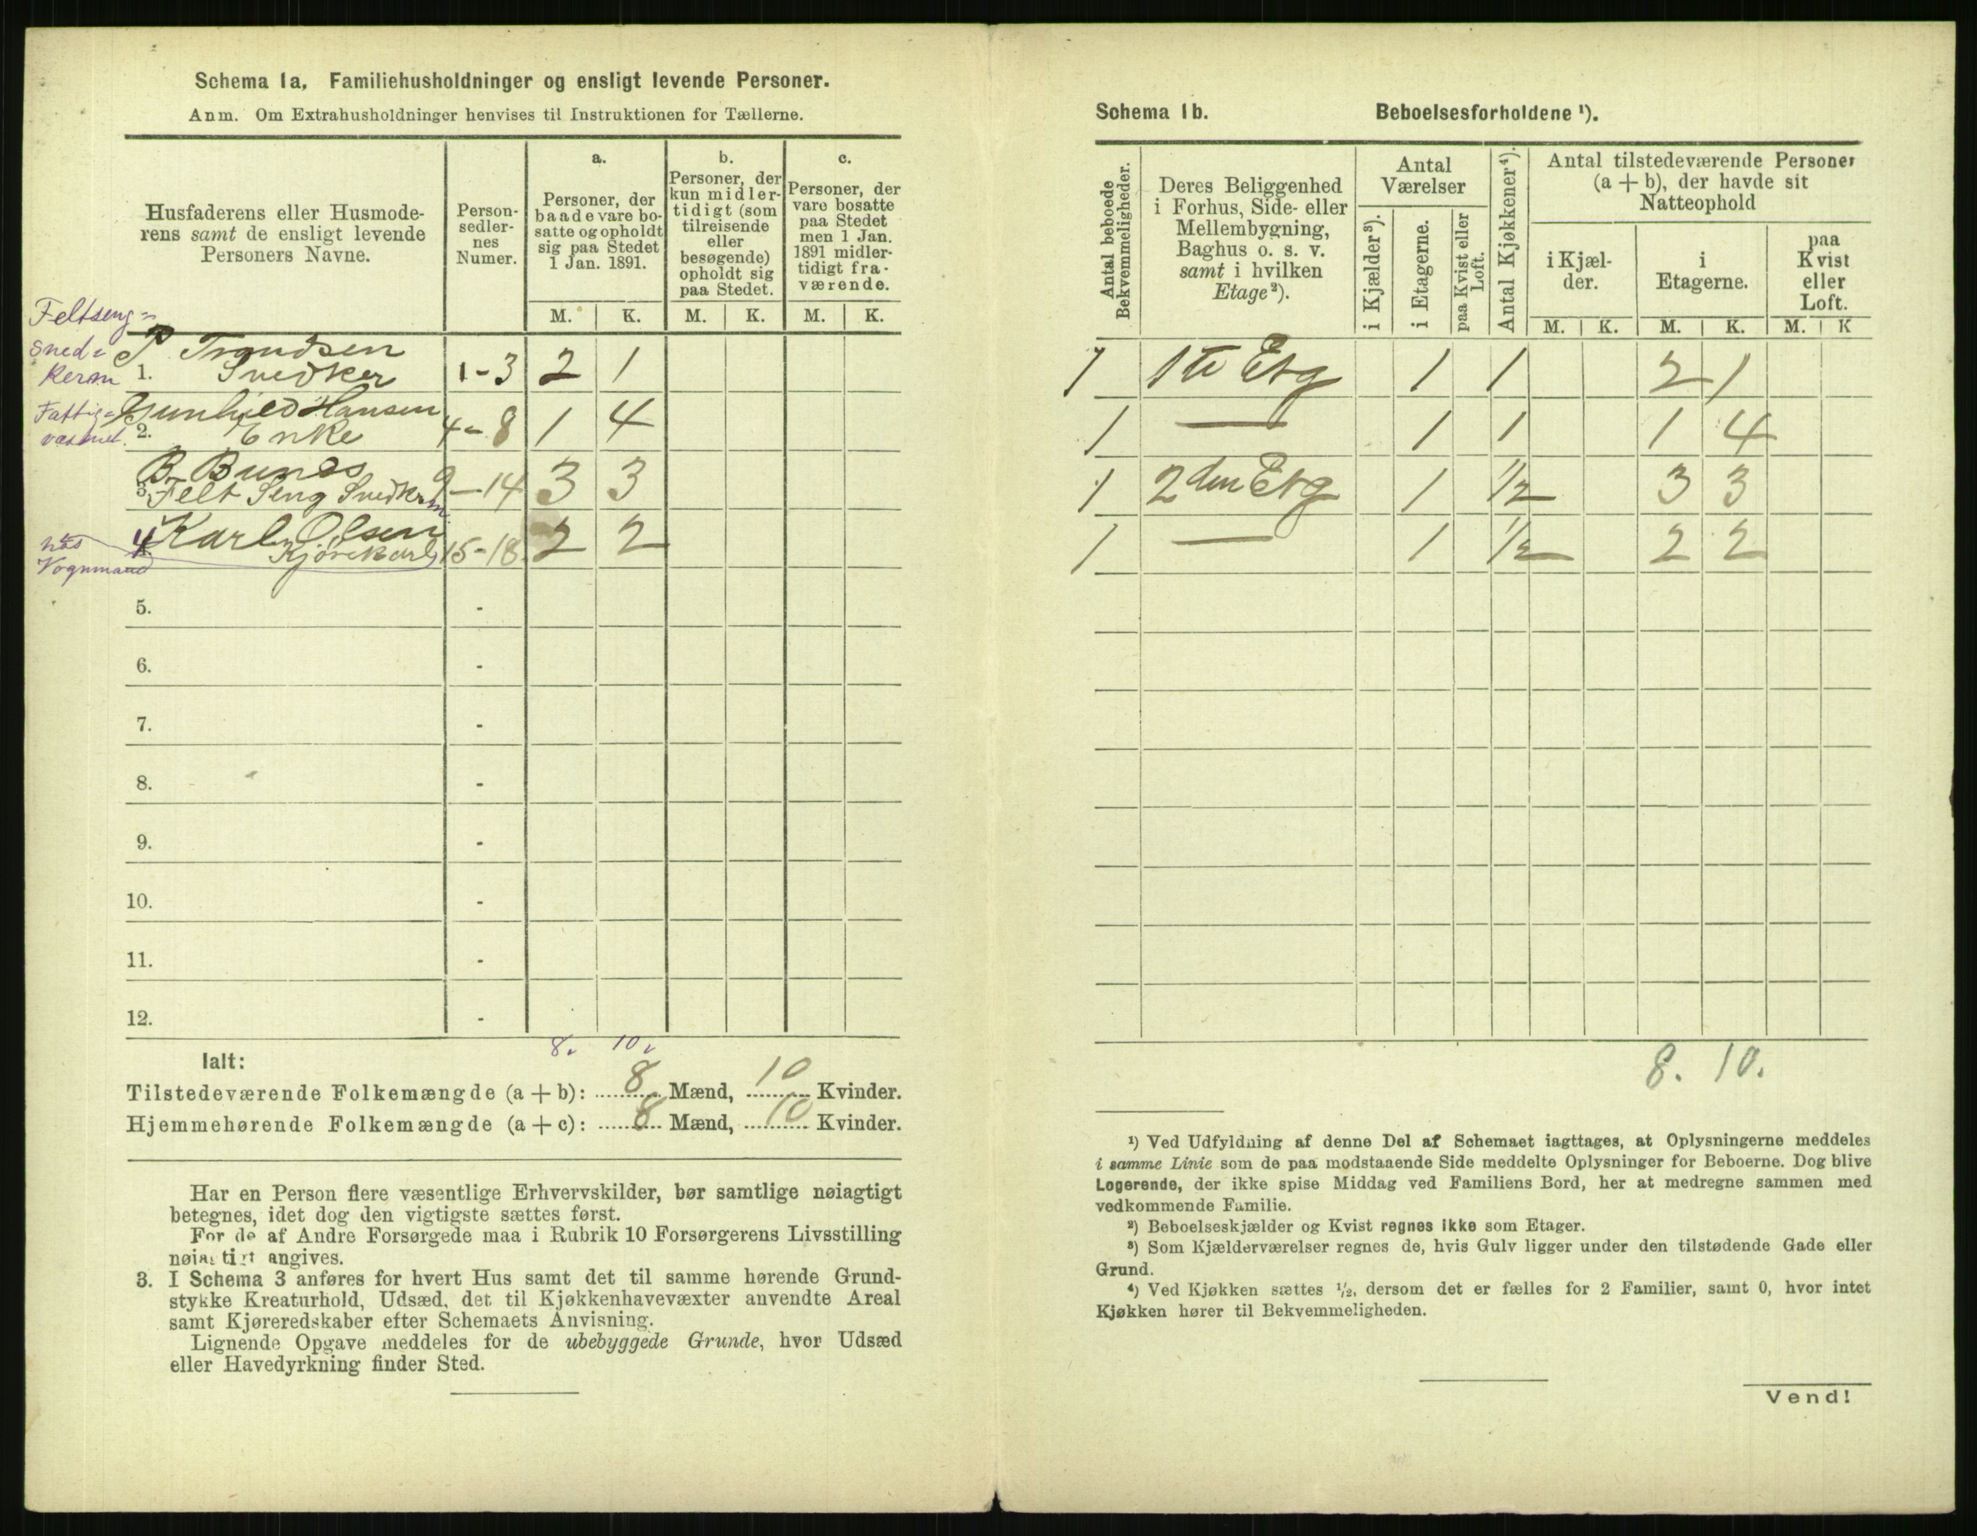 Schema 1a. Familiehusholdninger og ensligt levende Personer.
Anm. Om Extrahusholdninger henvises til Instruktionen for Tællerne.
Husfaderens eller Husmode-
rens samt de ensligt levende
Personers Navne.
Person-
sedler-
nes
Numer.
a.
Personer, der
baade vare bo-
satte og opholdt
sig paa Stedet
1 Jan. 1891.
b.
Personer, der
kun midler-
tidigt (som
tilreisende
eller
besøgende)
opholdt sig
paa Stedet.
c.
Personer, der
vare bosatte
paa Stedet
men 1 Jan.
1891 midler-
tidigt fra-
værende.
M. K. M. K. M. K.
Feltseng=
sned=
kerm
P. Trondsen
1. Snedker 1-3 2 1
Fattig=
Gunhild Hansen
2. Enke 4-8 1 4
B. Bunes
3. Felt Seng Snedker 9-14 3 3
hos
Vognmand
4 Karl Olsen
Kjørekarl 15-18 2 2
5. -
6. -
7. -
8. -
9. -
10. -
11. -
12. -
8. 10.
Ialt:
Tilstedeværende Folkemængde (a + b): 8 Mænd, 10 Kvinder.
Hjemmehørende Folkemængde (a + c): 8 Mænd, 10 Kvinder.
Har en Person flere væsentlige Erhvervskilder, bør samtlige nøiagtigt
betegnes, idet dog den vigtigste sættes først.
For de af Andre Forsørgede maa i Rubrik 10 Forsørgerens Livsstilling
nøiagtigt angives.
3. I Schema 3 anføres for hvert Hus samt det til samme hørende Grund-
stykke Kreaturhold, Udsæd, det til Kjøkkenhavevæxter anvendte Areal
samt Kjøreredskaber efter Schemaets Anvisning.
Lignende Opgave meddeles for de ubebyggede Grunde, hvor Udsæd
eller Havedyrkning finder Sted.
Schema 1b. Beboelsesforholdene ¹).
Antal beboede
Bekvemmeligheder.
Deres Beliggenhed
i Forhus, Side- eller
Mellembygning,
Baghus o. s. v.
samt i hvilken
Etage²).
Antal
Værelser
i Kjælder³).
i Etagerne.
paa Kvist eller
Loft.
Antal Kjøkkener⁴).
Antal tilstedeværende Personer
(a + b), der havde sit
Natteophold
i Kjæl-
der.
i
Etagerne.
paa
Kvist
eller
Loft.
M. K. M. K. M. K
1 1te Etg 1 1 2 1
1 — 1 1 1 4
1 2den Etg 1 ½ 3 3
1 — 1 ½ 2 2
8. 10.
¹) Ved Udfyldning af denne Del af Schemaet iagttages, at Oplysningerne meddeles
i samme Linie som de paa modstaaende Side meddelte Oplysninger for Beboerne. Dog blive
Logerende, der ikke spise Middag ved Familiens Bord, her at medregne sammen med
vedkommende Familie.
²) Beboelseskjælder og Kvist regnes ikke som Etager.
³) Som Kjælderværelser regnes de, hvis Gulv ligger under den tilstødende Gade eller
Grund.
⁴) Ved Kjøkken sættes ½, dersom det er fælles for 2 Familier, samt 0, hvor intet
Kjøkken hører til Bekvemmeligheden.
Vend!